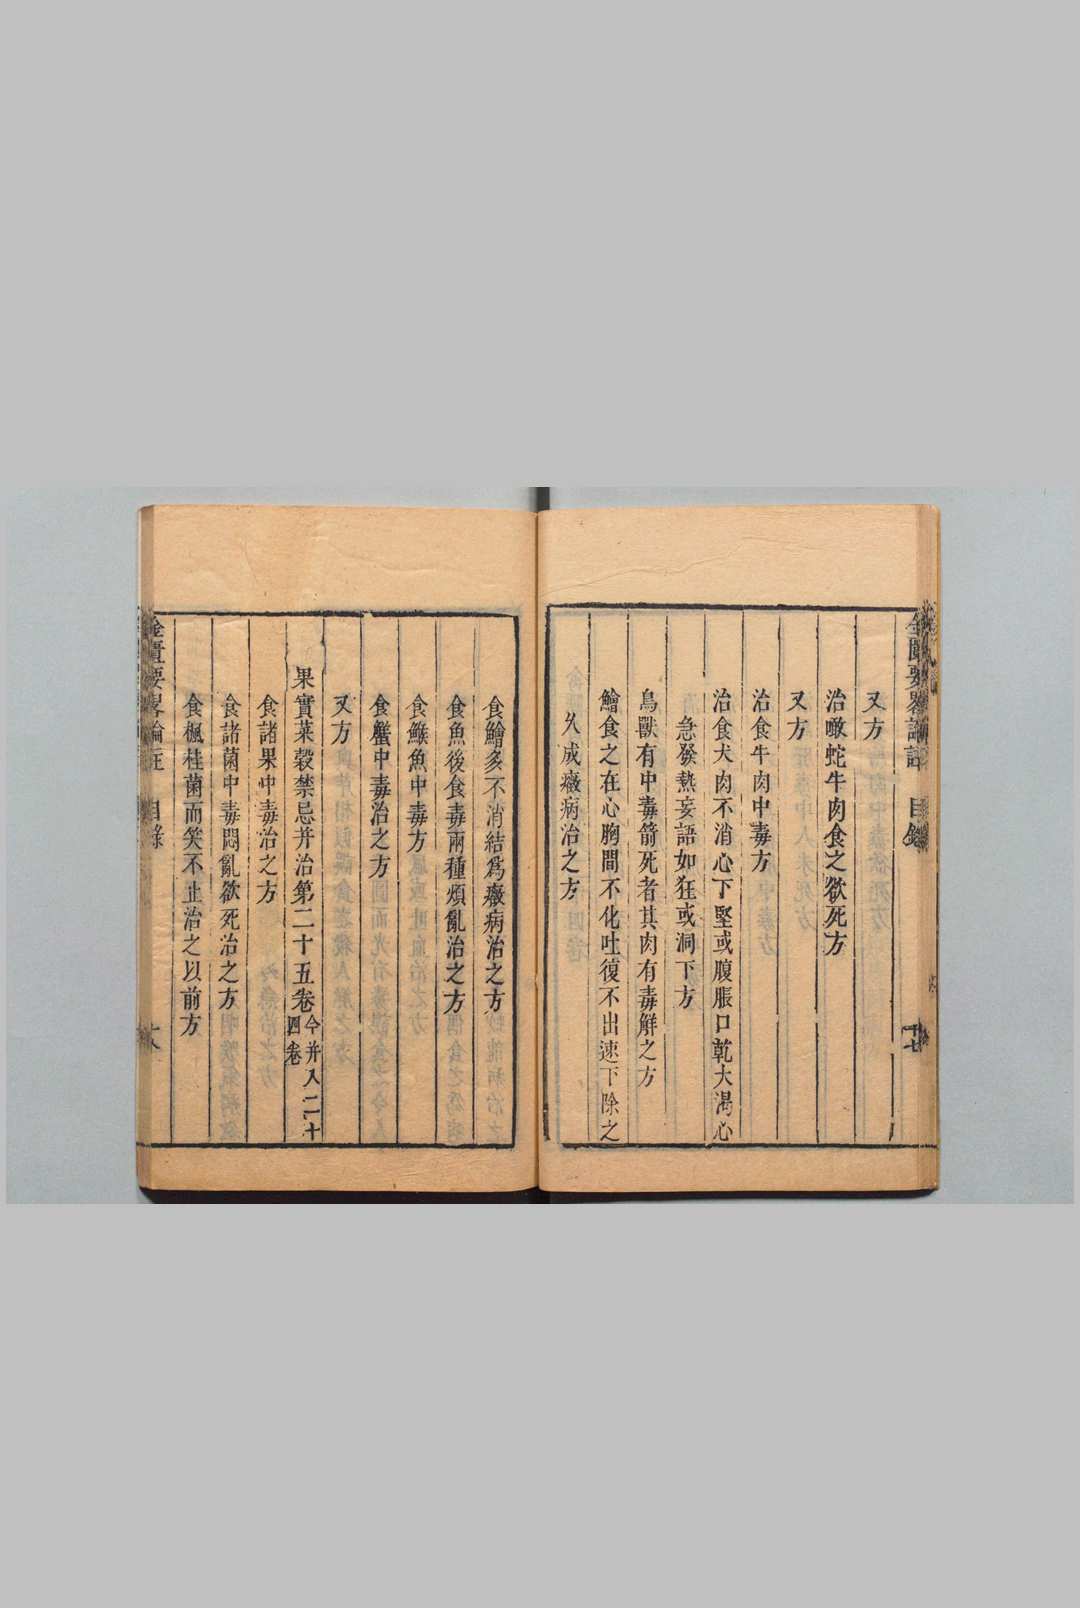 金匱要畧論註 目錄 十七
又方
治噉蛇牛肉食之欲死方
又方
治食牛肉中毒方
治食犬肉不消心下堅或腹脹口乾大渴心
急發熱妄語如狂或洞下方
鳥獸有中毒箭死者其肉有毒解之方
鱠食之在心胸間不化吐復不出速下除之
久成癥病治之方
食鱠多不消結為癥病治之方
食魚後食毒兩種煩亂治之方
食鯸魚中毒方
食蟹中毒治之方
又方
果實菜穀禁忌并治第二十五卷今并入二十四卷
食諸果中毒治之方
食諸菌中毒悶亂欲死治之方
食楓柱菌而笑不止治之以前方
金匱要畧論註 目錄